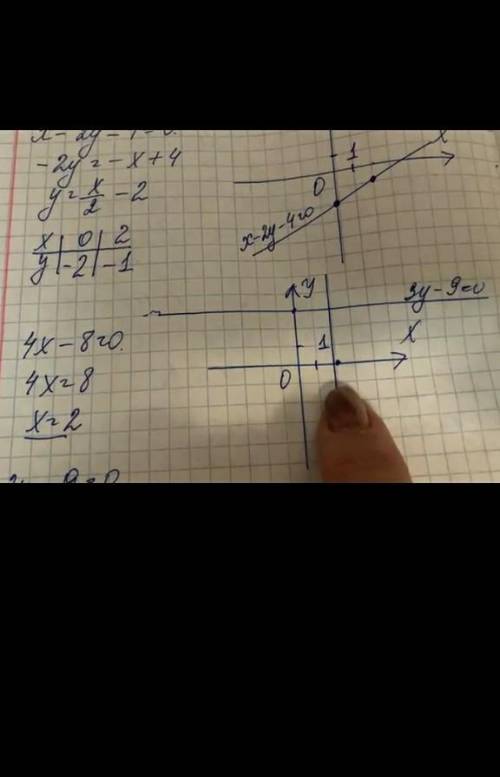 -2y = -x + 4
y = x/2 - 2
x | 0 | 2
y | -2 | -1
1
X
0
x-2y-4=0
y
3y-9=0
4x-8=0.
1
X
4x=8
0
x=2